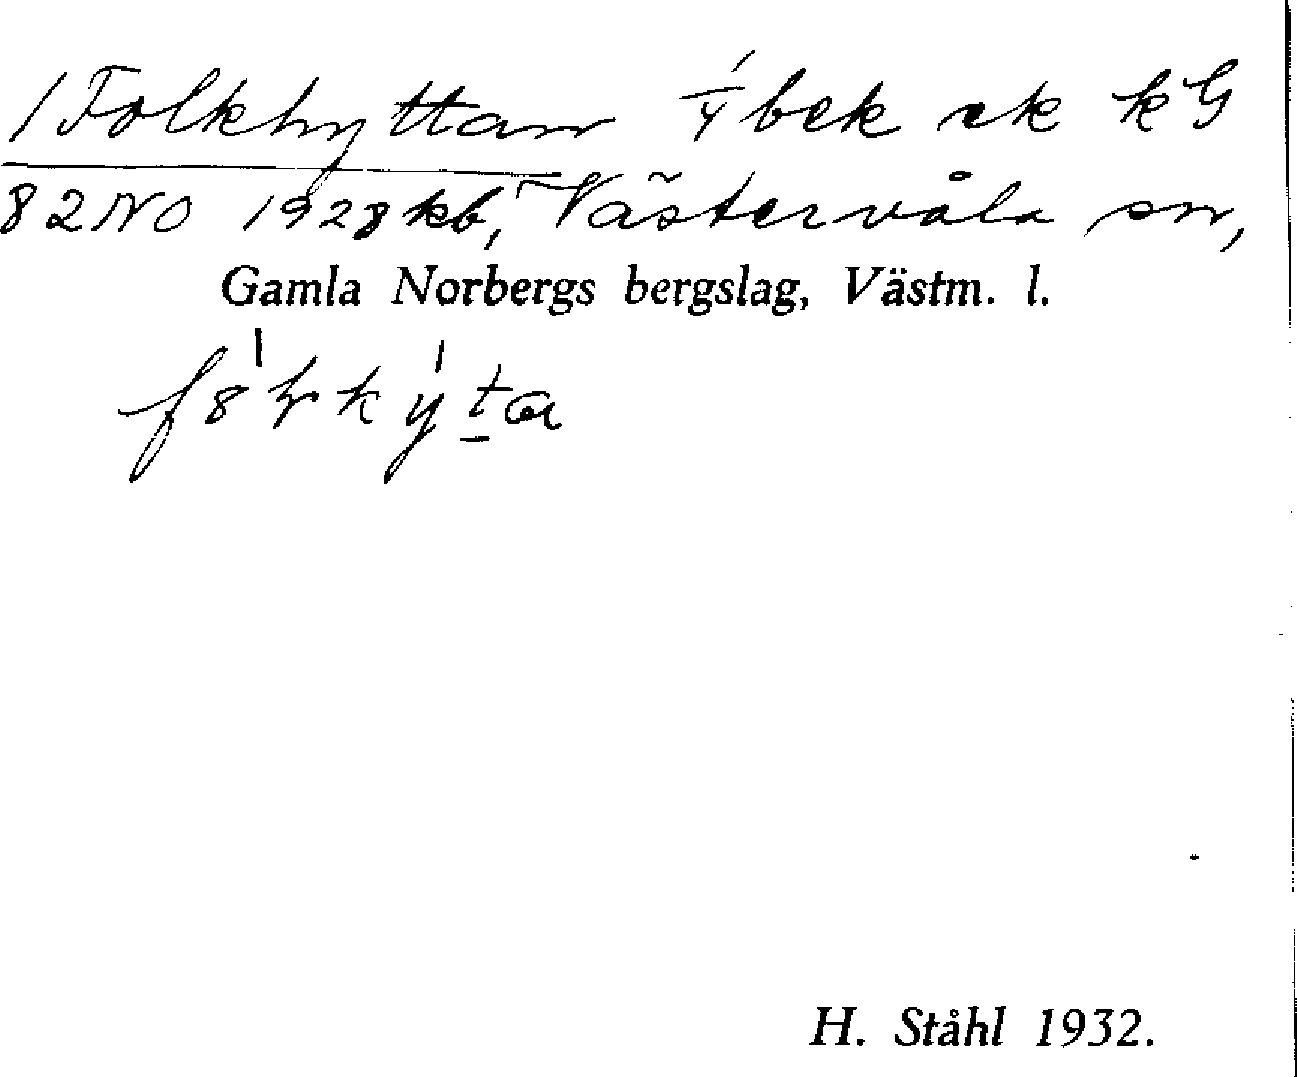 /Folkhyttan ý bek ek kG
82NO 1928 kb, Västervåla sn,
Gamla Norbergs bergslag, Västm. l.
H. Ståhl 1932.